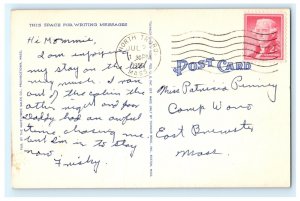 THIS SPACE FOR WRITING MESSAGES
Hi Mommie,
I am enjoying
my stay on the
very much. I ran
out of the cabin the
other night and poor
Daddy had an awful
time, chasing me
but I'm in to stay
now.
Frisky.
NORTH TRURO
JUL
MASS
POST CARD
Miss Patricia Penny
Camp Wono
East Brewster
Mass.